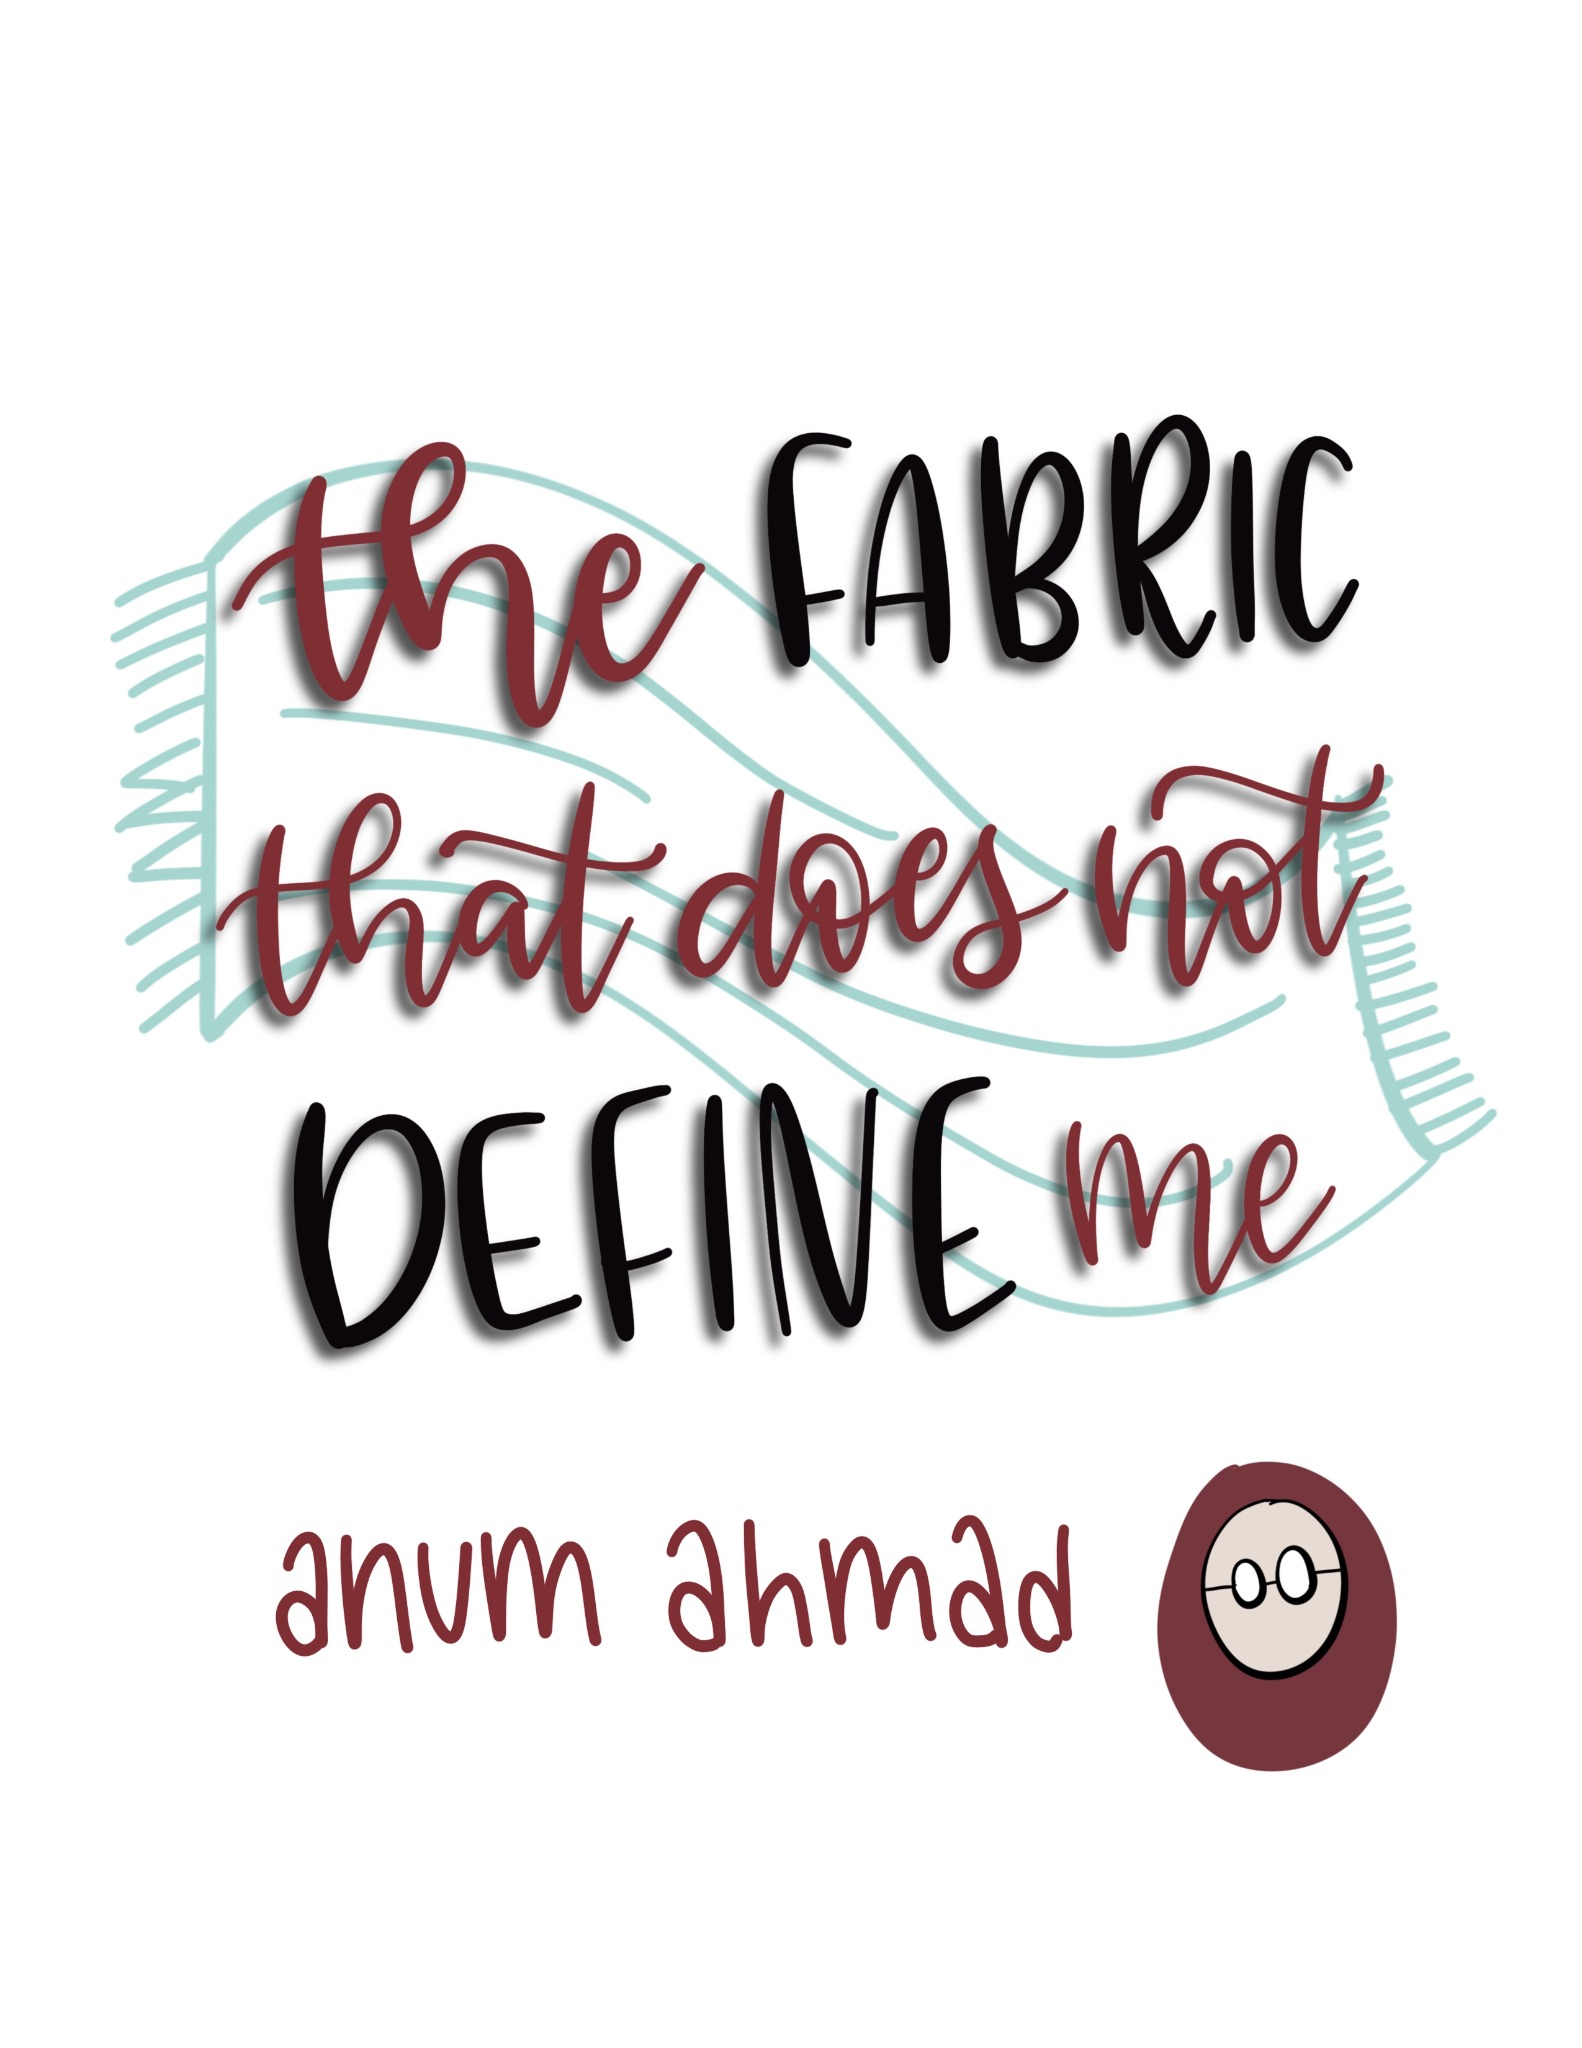 the FABRIC
that does not
DEFINE me
anum ahmad